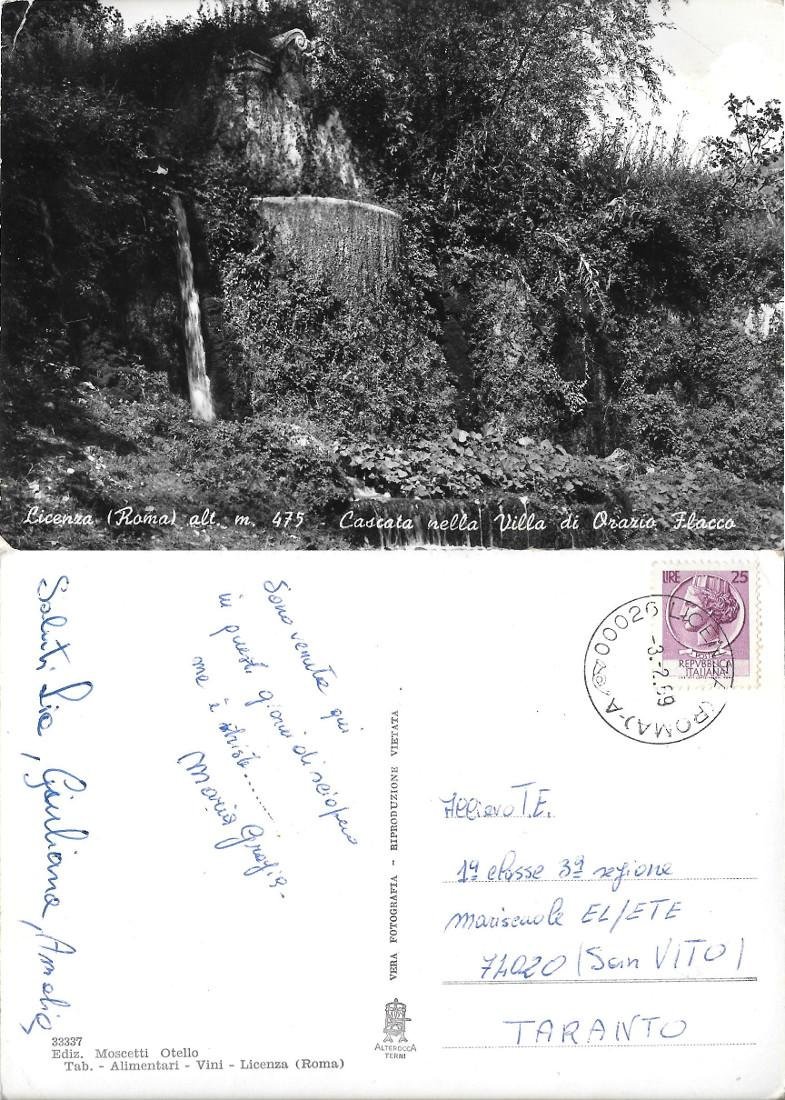 Licenza (Roma) alt. m. 475 - Cascata nella Villa di Orazio Flacco
LIRE 25
POSTE
REPVBBLICA
ITALIANA
00026 LICENZA (ROMA) - A
-3.-2.69
Saluti Lia, Giuliana, Amelia
Sono venuta qui
in questi giorni di sciopero
ma è triste........
Maria Grazia-
VERA FOTOGRAFIA - RIPRODUZIONE VIETATA
Allievo T.E.
1ª classe 3ª sezione
Mariscuole EL/ETE
74020 (San VITO)
TARANTO
33337
Ediz. Moscetti Otello
Tab. - Alimentari - Vini - Licenza (Roma)
ALTEROCCA
TERNI